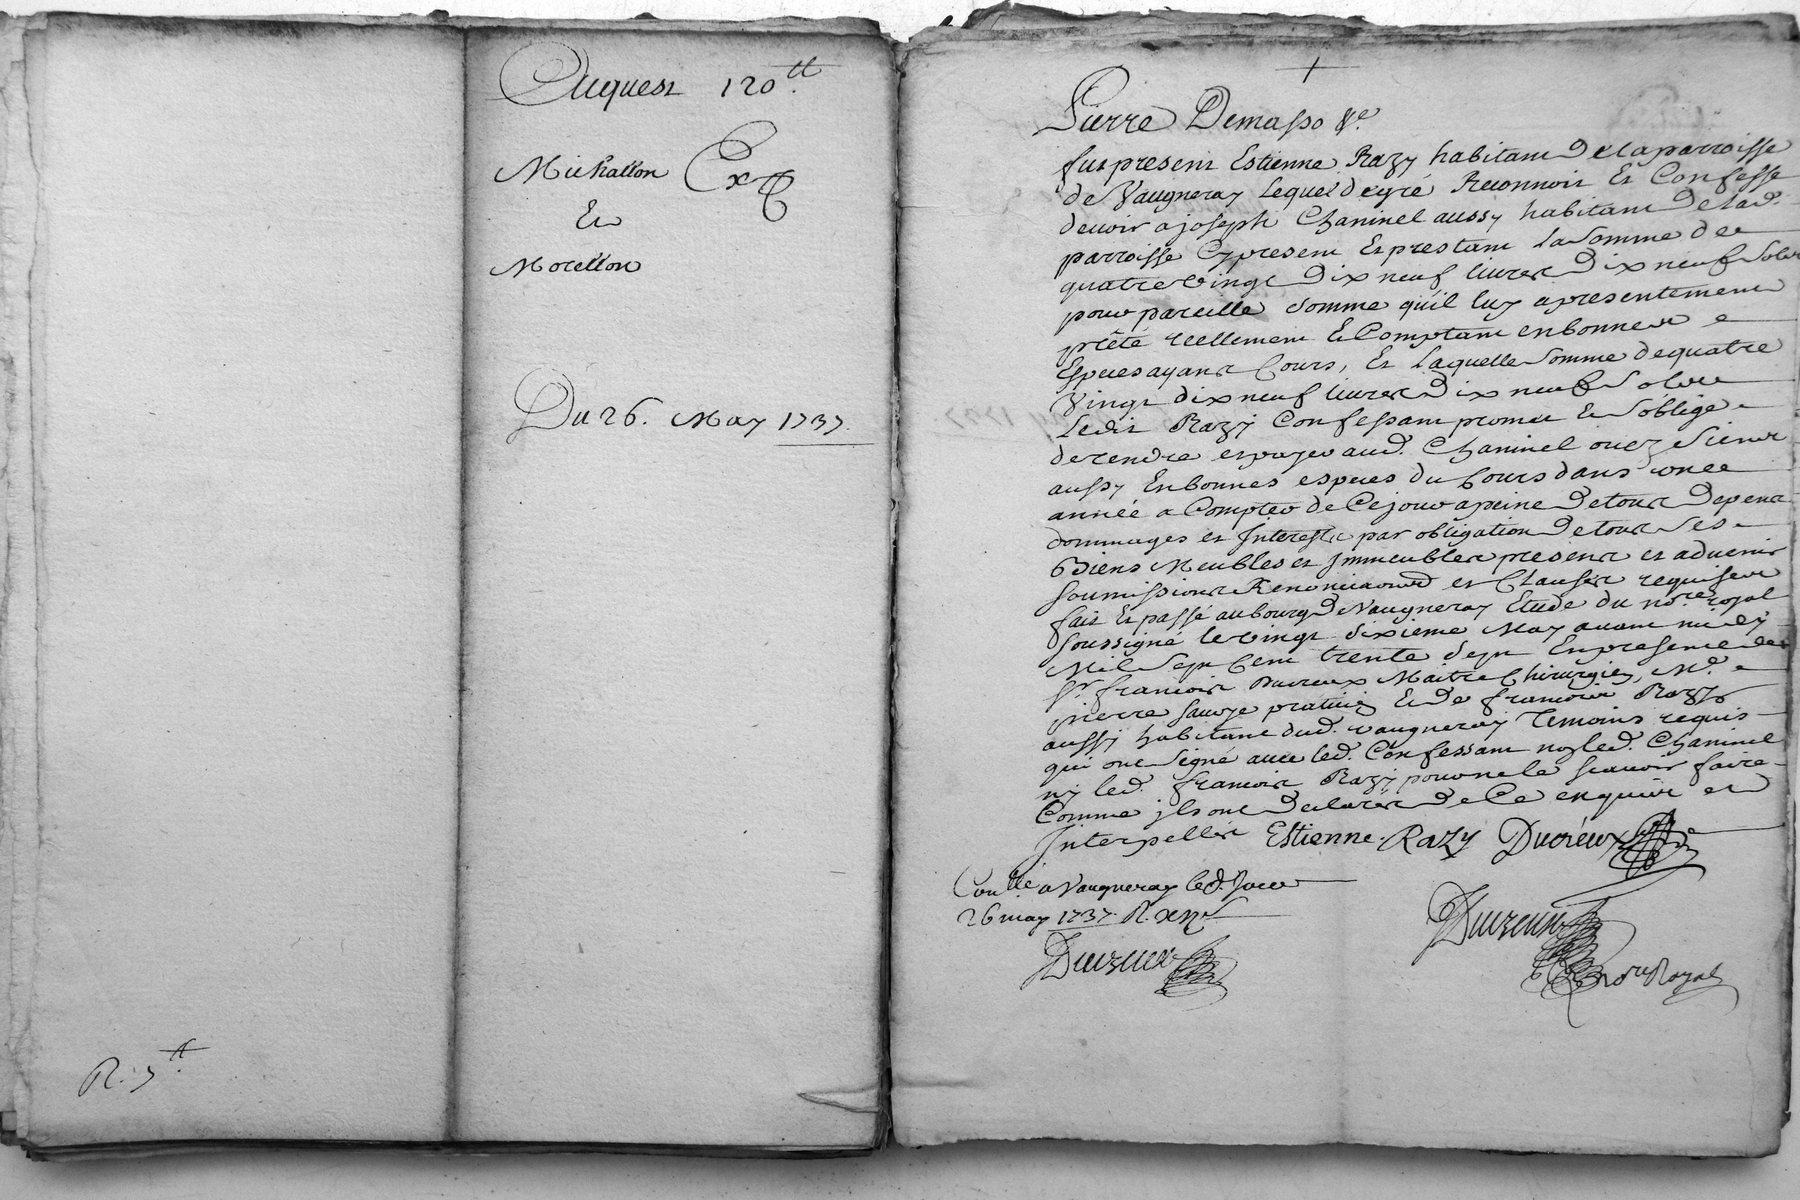 Acquest 120ᵗᵗ.
Michallon Ext
Et
Morellon
Du 26. May 1737.
R. 3ᵗᵗ.
Pierre Demasso
fut present Estienne Razy habitant de la parroisse
de Vaugneray Lequel de gré Reconnoit Et Confesse
devoir a joseph Chaninel aussy habitant de lad.
parroisse Cy present Et prestant La Somme de
quatre vingt dix neuf livres dix neuf Sols
pour pareille Somme qu'il luy a presentement
prété reellement Et Comptant en bonnes
Especes ayant Cours, Et Laquelle Somme de quatre
Vingt dix neuf livres dix neuf Sols
Ledit Razy Confessant promet Et S'oblige
de rendre et payer aud. Chaninel ou ez Siens
aussy En bonnes especes du Cours dans une
année a Compter de Ce jour a peine de tous depens
dommages et Interests par obligation de tous Ses
Biens Meubles et Immeubles presents et advenir
Soumissions Renonciaons et Clauses requises
fait Et passé au bourg de Vaugneray Etude du noʳᵉ royal
Soussigné le vingt Sixieme May avant midy
Mil Sept Cent trente Sept En presence de
Sʳ. francois Ducreux Maitre Chirurgien, Mᵉ.
pierre Sauvje praticien Et de francois Razy
aussy habitants dud. Vaugneray Temoins requis
qui ont Signé avec led. Confessant non led. Chaninel
ny led. francois Razy pour ne le Scavoir faire
Comme ils ont declarés de Ce enquis et
Interpellés Estienne. Razy Ducréux
Conllé a Vaugneray led. Jour
26 may 1737. R.
Ducreux
Ducreux
noʳᵉ Royal